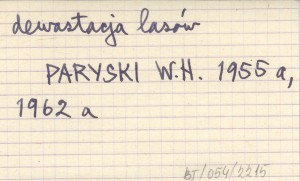 dewastacja lasów
PARYSKI W.H. 1955 a,
1962 a
BJ/054/2215